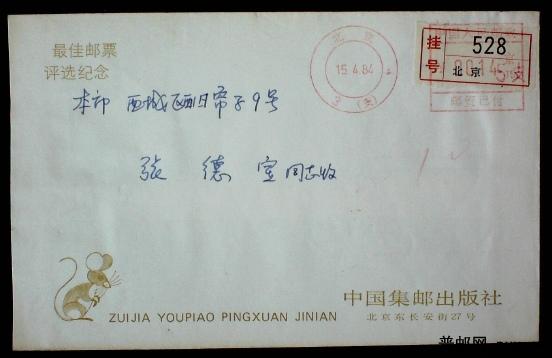 最佳邮票
评选纪念
北京
15.4.84
挂号
528
北京
支
邮资已付
本市 西城区旧帘子9号
张 德 宝 同志收
ZUIJIA YOUPIAO PINGXUAN JINIAN
中国集邮出版社
北京东长安街27号
普邮网